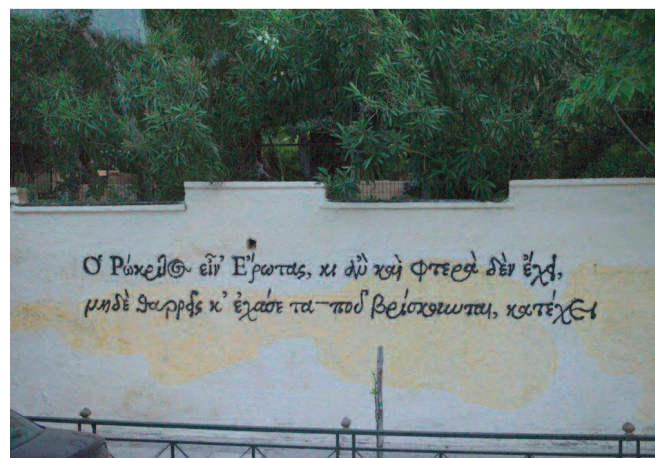 Ὁ Ρώκριτος εἶν' Ἔρωτας, κι ἂν καὶ φτερὰ δὲν ἔχει,
μηδὲ θαρρεῖς κ' ἐχάσε τα—ποῦ βρίσκουνται, κατέχει